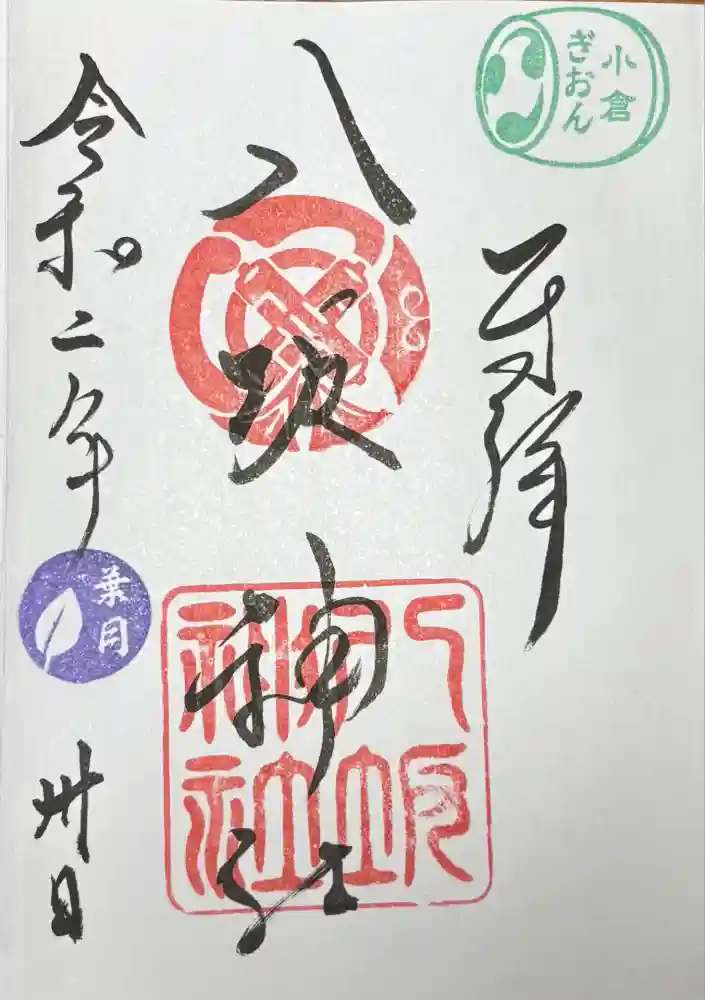 小倉
ぎおん
奉拝
八坂神社
八坂
神社
令和二年
葉月
卅日